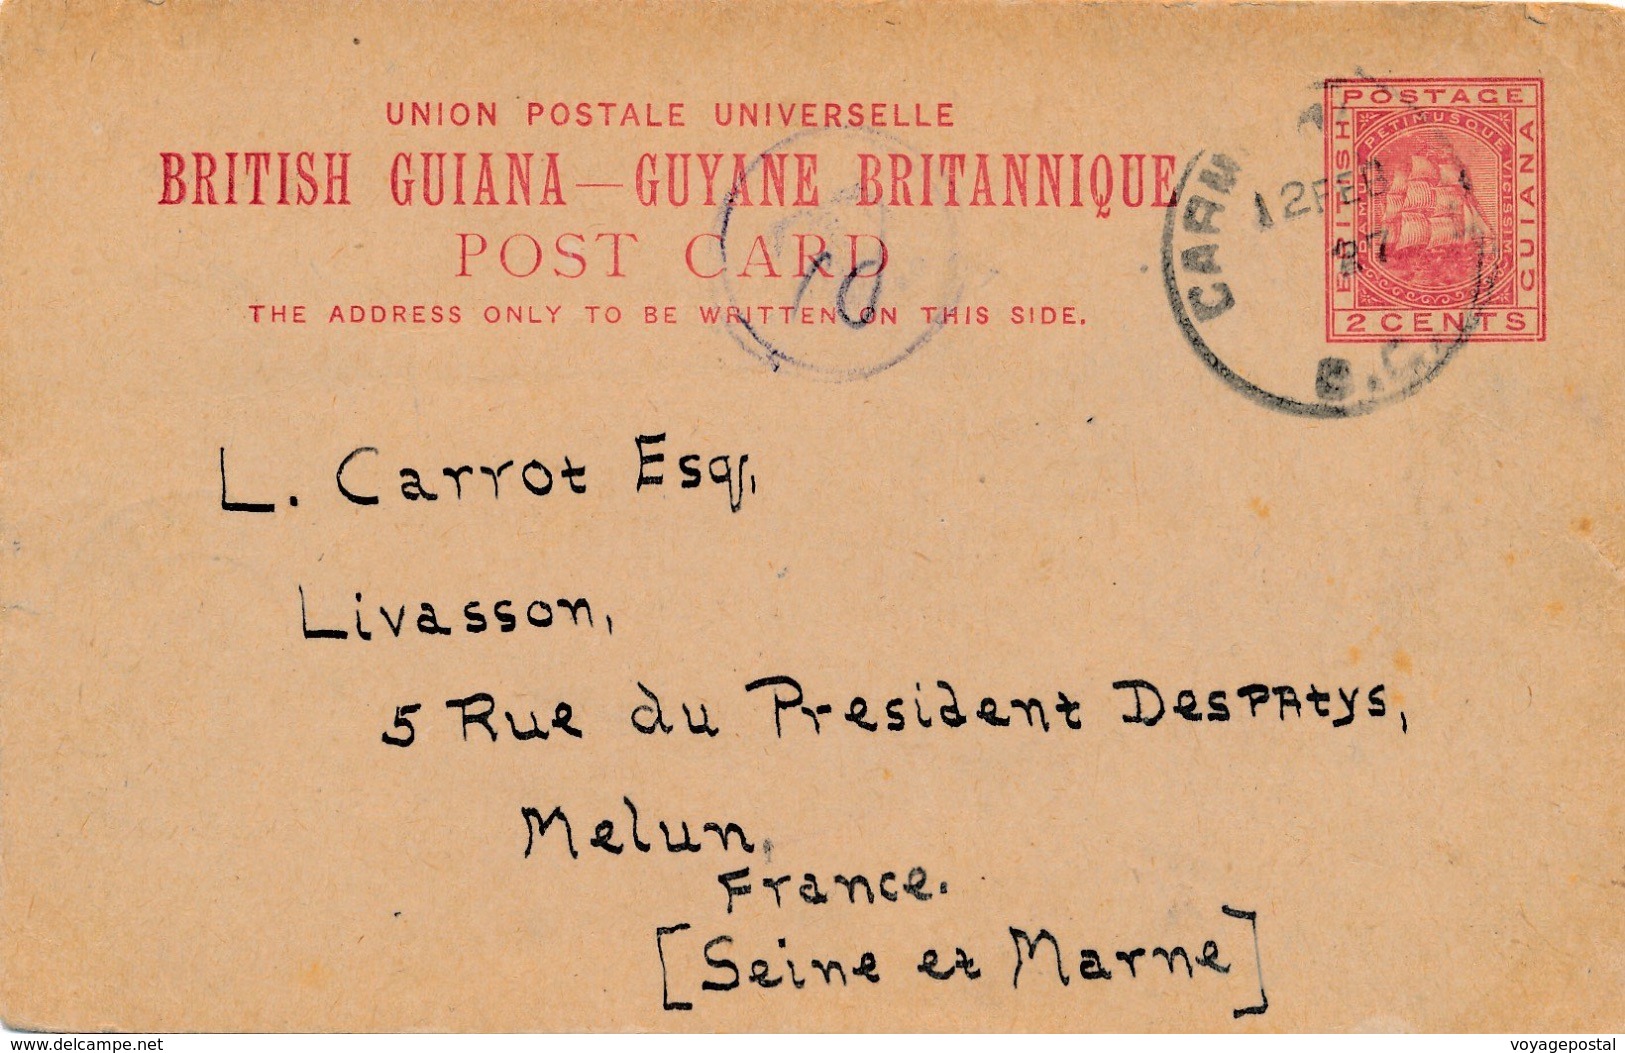 UNION POSTALE UNIVERSELLE
BRITISH GUIANA—GUYANE BRITANNIQUE
POST CARD
THE ADDRESS ONLY TO BE WRITTEN ON THIS SIDE.
10
POSTAGE
BRITISH
GUIANA
DAMUS PETIMUSQUE VICISSIM
2 CENTS
12 FEB
B.G.
L. Carrot Esq,
Livasson,
5 Rue du President Despatys,
Melun,
France.
[Seine et Marne]
www.delcampe.net
voyagepostal